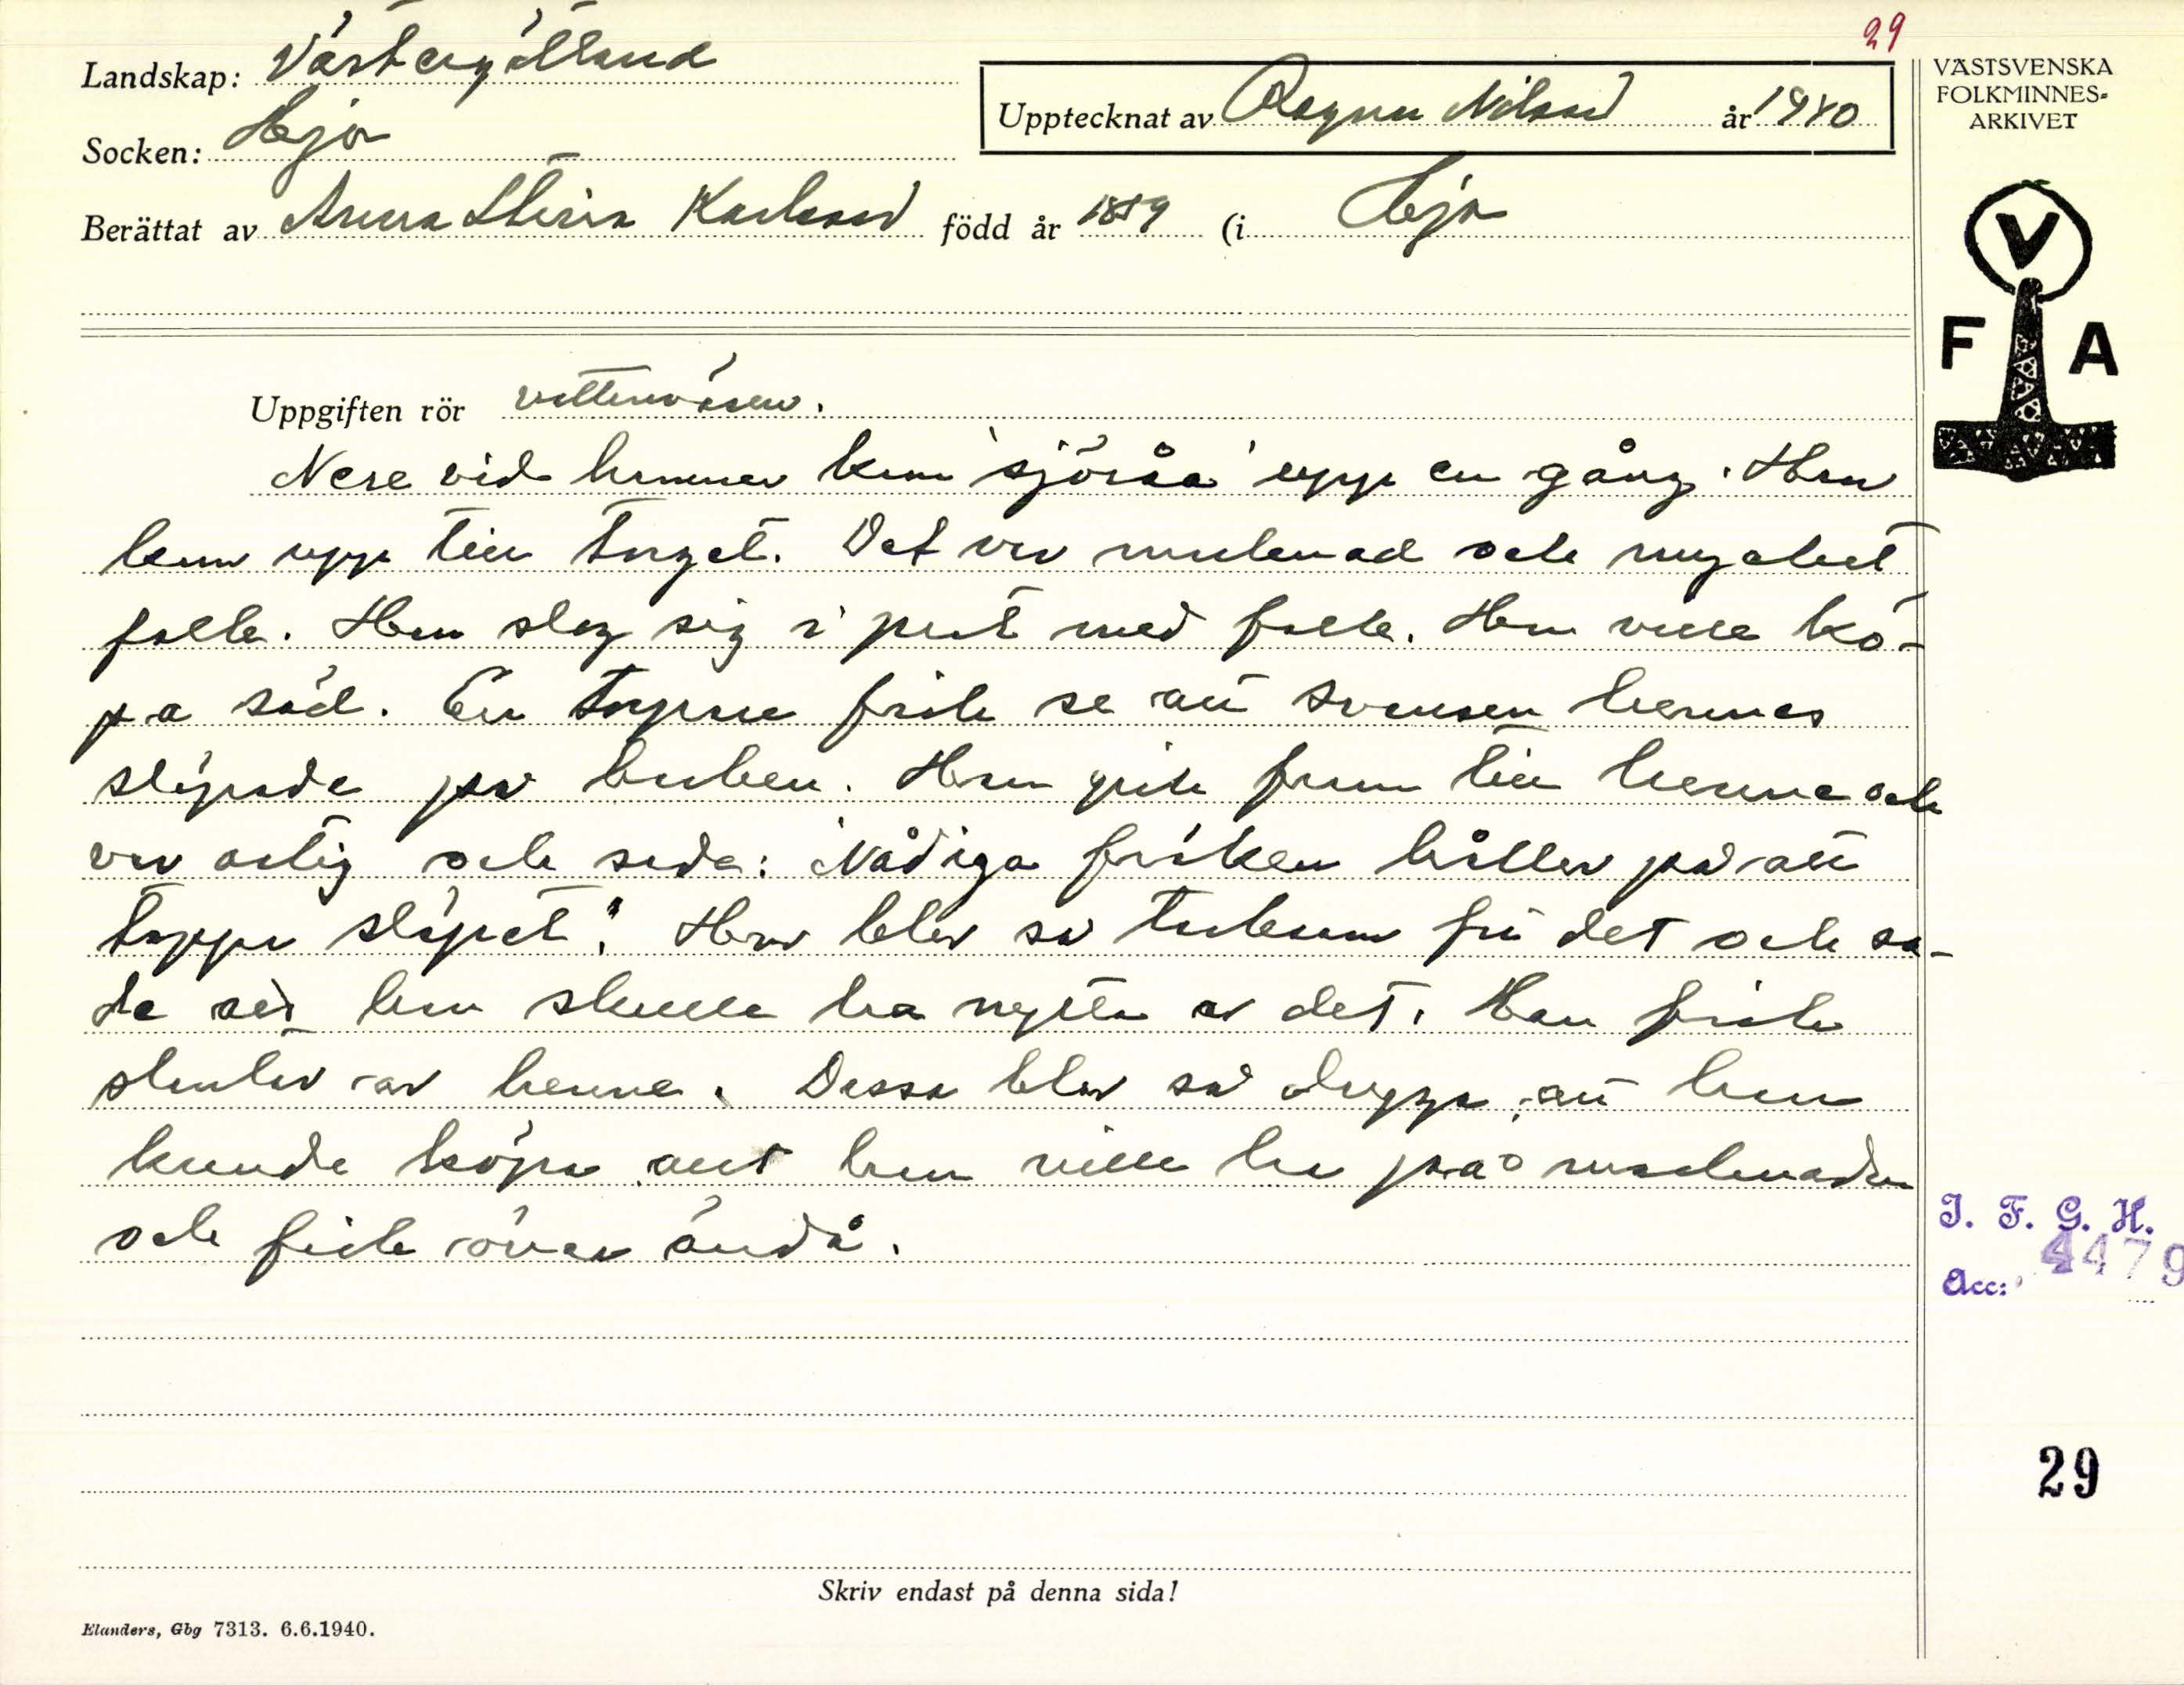 29
Landskap: Västergötland
Socken: Hjo
Upptecknat av Ragnar Nilsson år 1940
Berättat av Anna Stina Karlsson född år 1859 (i Hjo
VÄSTSVENSKA
FOLKMINNES-
ARKIVET
V
F A
Uppgiften rör vattenväsen.
Nere vid hamnen kom 'sjöråa' upp en gång. Hon
kom upp till torget. Det var marknad och mycket
folk. Hon slog sig i prat med folk. Hon ville kö-
pa säd. En torpare fick se att svansen hennes
släpade på backen. Han gick fram till henne och
var artig och sade: "Nådiga fröken håller på att
tappa släpet". Hon blev så tacksam för det och sa-
de att han skulle ha nytta av det. Han fick
slantar av henne. Dessa blev så dryga, att han
kunde köpa allt han ville ha på marknaden
och fick över ändå.
I. F. G. H.
Acc: 4479
29
Skriv endast på denna sida!
Elanders, Gbg 7313. 6.6.1940.